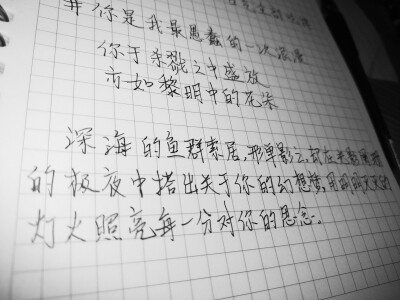 你是我最愚蠢的一次浪漫
你于杀戮之中盛放
亦如黎明中的花朵
深海的鱼群索居,形单影
的极夜中搭出关于你的幻想,用明明灭灭的
灯火照亮每一分对你的思念。